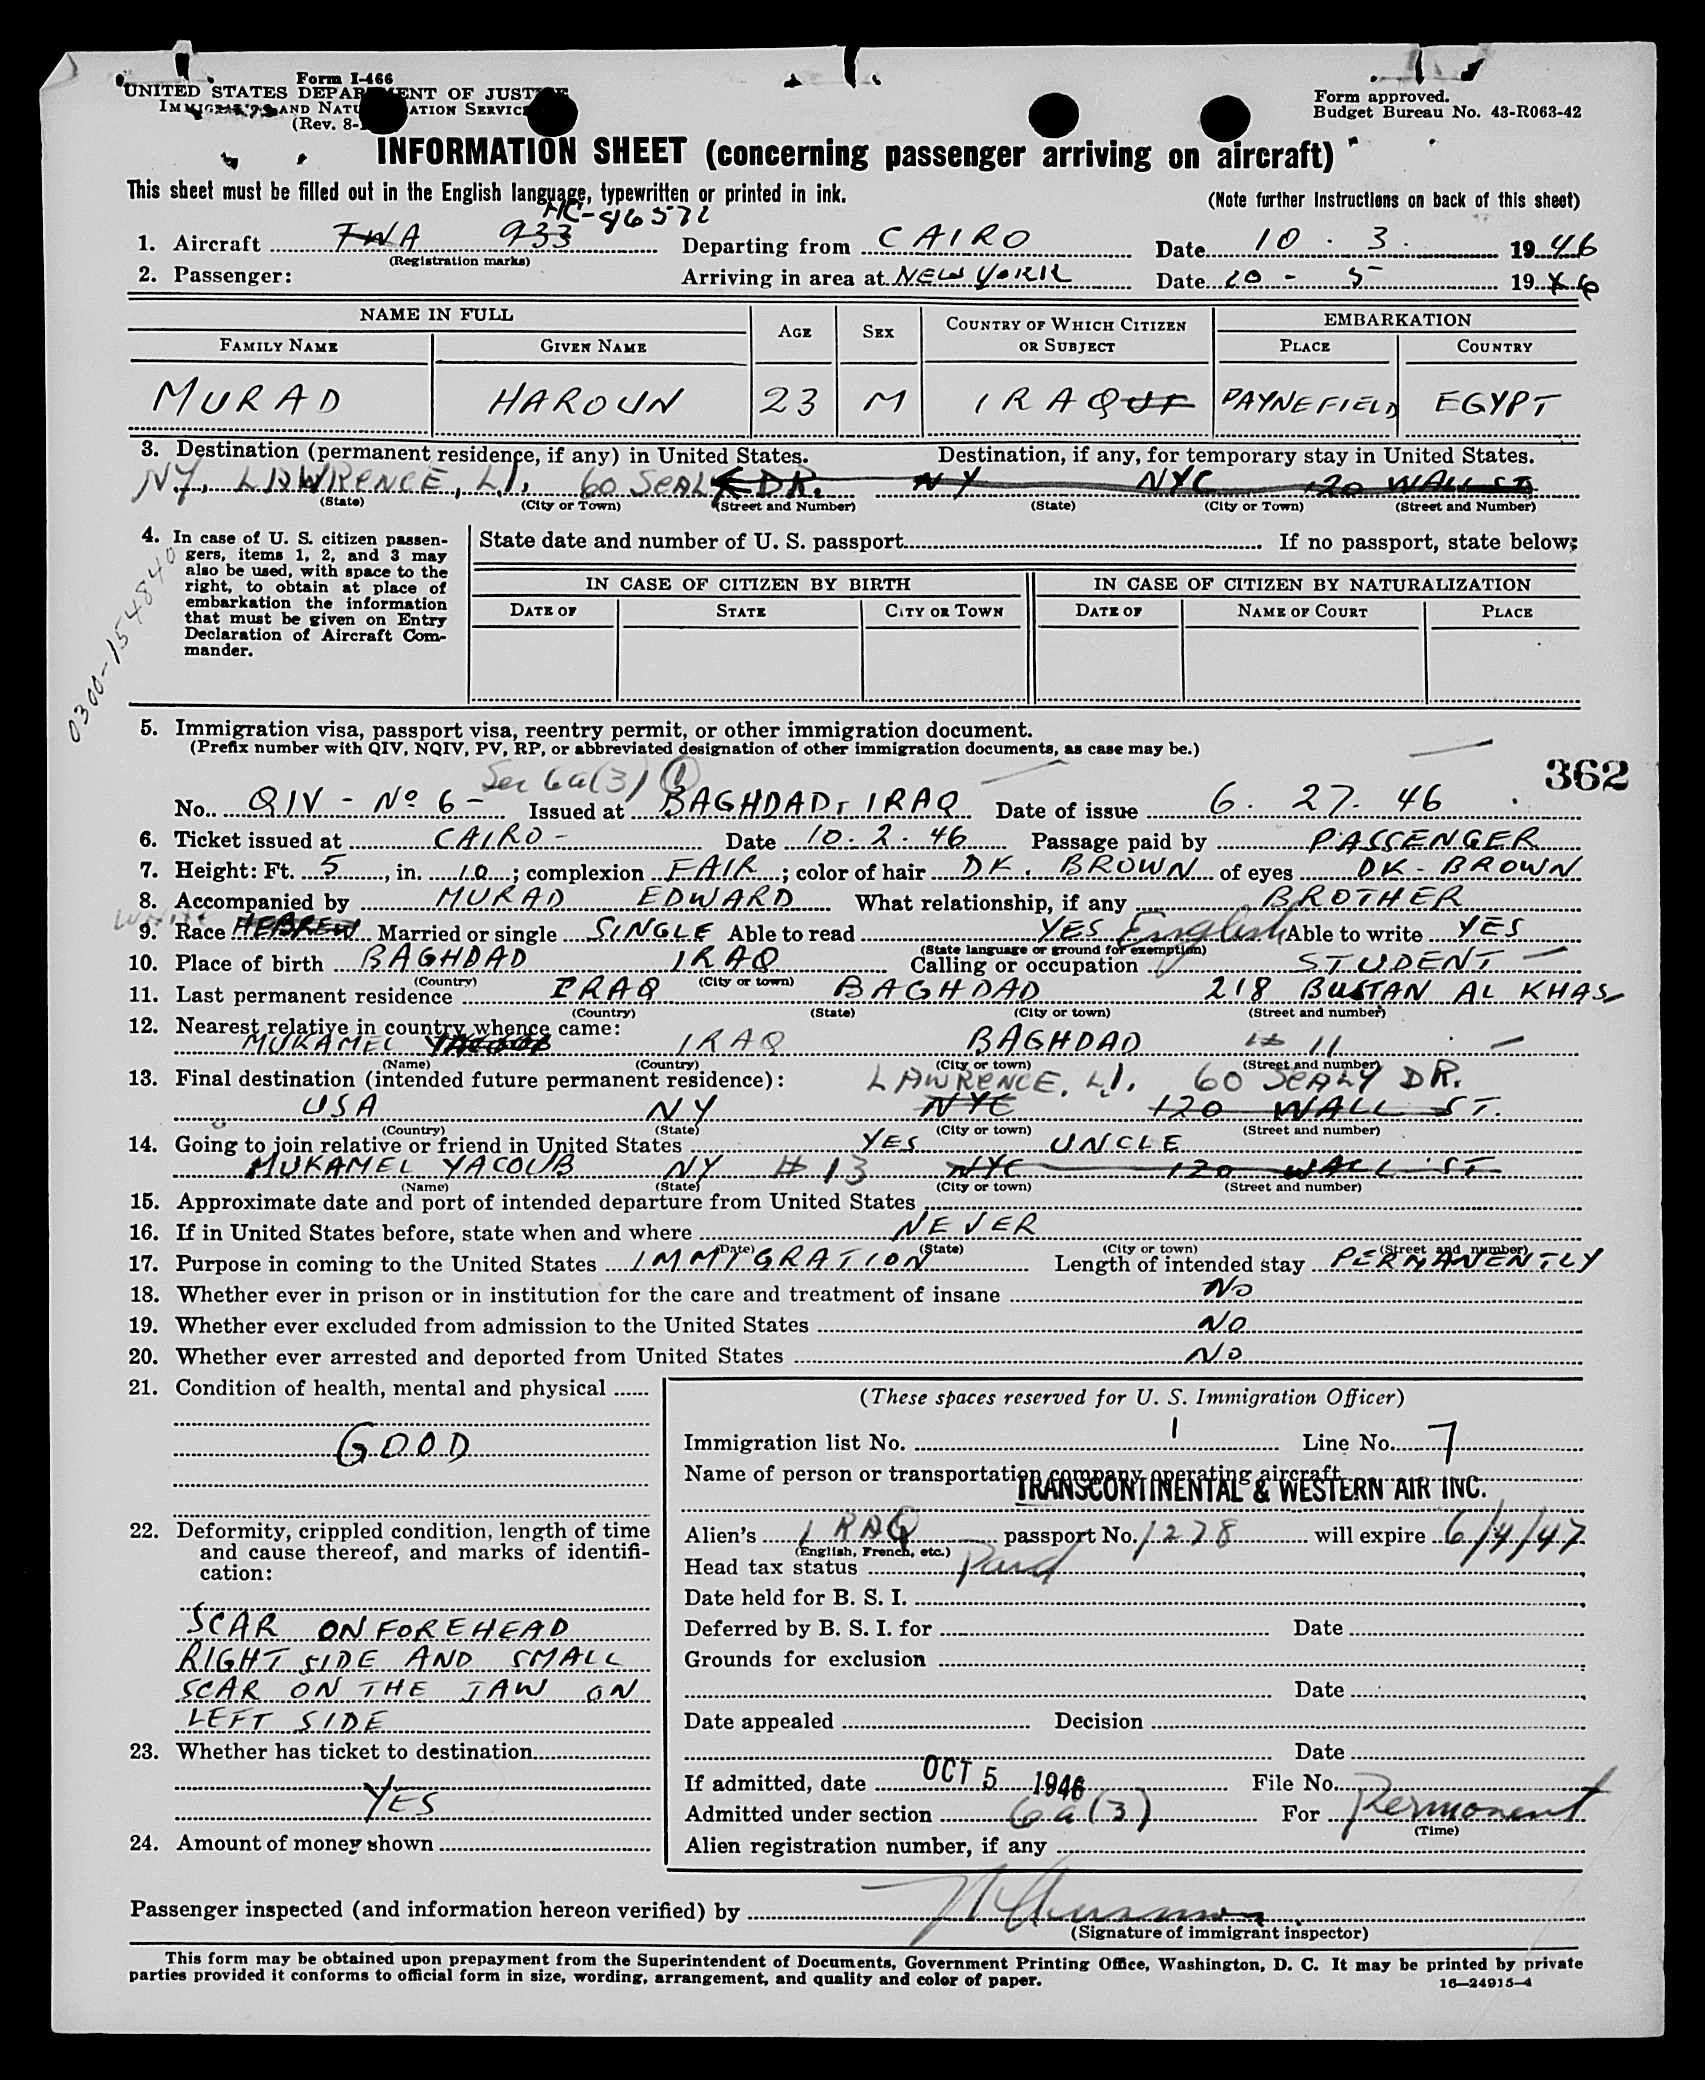 Form I-466
UNITED STATES DEPARTMENT OF JUSTICE
IMMIGRATION AND NATURALIZATION SERVICE
(Rev. 8-
Form approved.
Budget Bureau No. 43-R063-42
INFORMATION SHEET (concerning passenger arriving on aircraft)
This sheet must be filled out in the English language, typewritten or printed in ink. (Note further instructions on back of this sheet)
NC-86572
1. Aircraft TWA 933 Departing from CAIRO Date 10 . 3 . 1946
(Registration marks)
2. Passenger: Arriving in area at NEW YORK Date 10 - 5 1946
NAME IN FULL AGE SEX COUNTRY OF WHICH CITIZEN OR SUBJECT EMBARKATION
FAMILY NAME GIVEN NAME PLACE COUNTRY
MURAD HAROUN 23 M IRAQ PAYNEFIELD EGYPT
3. Destination (permanent residence, if any) in United States. Destination, if any, for temporary stay in United States.
NY, LAWRENCE, L.I. 60 SEALY DR. NY NYC 120 WALL ST
(State) (City or Town) (Street and Number) (State) (City or Town) (Street and Number)
4. In case of U. S. citizen passen- State date and number of U. S. passport If no passport, state below:
gers, items 1, 2, and 3 may
also be used, with space to the IN CASE OF CITIZEN BY BIRTH IN CASE OF CITIZEN BY NATURALIZATION
right, to obtain at place of
embarkation the information DATE OF STATE CITY OR TOWN DATE OF NAME OF COURT PLACE
that must be given on Entry
Declaration of Aircraft Com-
mander.
0300-154840
5. Immigration visa, passport visa, reentry permit, or other immigration document.
(Prefix number with QIV, NQIV, PV, RP, or abbreviated designation of other immigration documents, as case may be.)
362
Sec 6a(3) (1)
No. QIV - No 6 - Issued at BAGHDAD, IRAQ Date of issue 6. 27. 46
6. Ticket issued at CAIRO - Date 10. 2. 46 Passage paid by PASSENGER
7. Height: Ft. 5, in. 10; complexion FAIR; color of hair DK. BROWN of eyes DK. BROWN
8. Accompanied by MURAD EDWARD What relationship, if any BROTHER
White
9. Race HEBREW Married or single SINGLE Able to read YES English Able to write YES
(State language or ground for exemption)
10. Place of birth BAGHDAD IRAQ Calling or occupation STUDENT
(Country) (City or town)
11. Last permanent residence IRAQ BAGHDAD 218 BUSTAN AL KHAS
(Country) (State) (City or town) (Street and number)
12. Nearest relative in country whence came:
MUKAMEL YACOUB IRAQ BAGHDAD # 11
(Name) (Country) (City or town) (Street and number)
13. Final destination (intended future permanent residence): LAWRENCE, L.I. 60 SEALY DR.
USA NY NYC 120 WALL ST.
(Country) (State) (City or town) (Street and number)
14. Going to join relative or friend in United States YES UNCLE
MUKAMEL YACOUB NY # 13 NYC 120 WALL ST
(Name) (State) (City or town) (Street and number)
15. Approximate date and port of intended departure from United States
16. If in United States before, state when and where NEVER
(Date) (State) (City or town) (Street and number)
17. Purpose in coming to the United States IMMIGRATION Length of intended stay PERMANENTLY
18. Whether ever in prison or in institution for the care and treatment of insane NO
19. Whether ever excluded from admission to the United States NO
20. Whether ever arrested and deported from United States NO
21. Condition of health, mental and physical
GOOD
22. Deformity, crippled condition, length of time
and cause thereof, and marks of identifi-
cation:
SCAR ON FOREHEAD
RIGHT SIDE AND SMALL
SCAR ON THE JAW ON
LEFT SIDE
23. Whether has ticket to destination
YES
24. Amount of money shown
(These spaces reserved for U. S. Immigration Officer)
Immigration list No. 1 Line No. 7
Name of person or transportation company operating aircraft
TRANSCONTINENTAL & WESTERN AIR INC.
Alien's IRAQ passport No. 1278 will expire 6/4/47
(English, French, etc.)
Head tax status Paid
Date held for B. S. I.
Deferred by B. S. I. for Date
Grounds for exclusion
Date
Date appealed Decision
Date
If admitted, date OCT 5 1946 File No.
Admitted under section 6a(3) For Permanent
(Time)
Alien registration number, if any
Passenger inspected (and information hereon verified) by
(Signature of immigrant inspector)
This form may be obtained upon prepayment from the Superintendent of Documents, Government Printing Office, Washington, D. C. It may be printed by private
parties provided it conforms to official form in size, wording, arrangement, and quality and color of paper. 16—24915-4